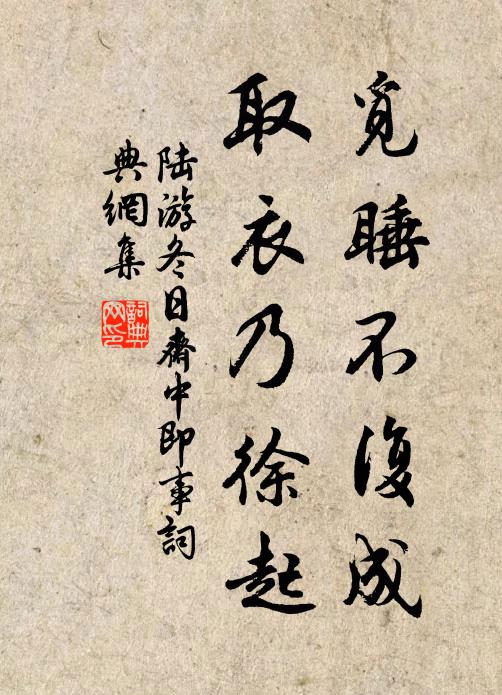 覓睡不復成
取衣乃徐起
陸游冬日齋中即事詞
典網集
詞典
网印